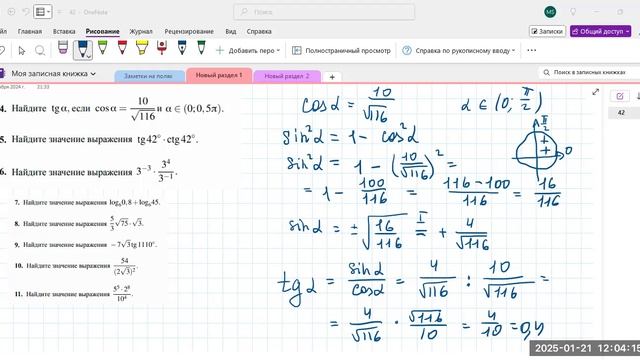 42 - OneNote
Поиск
MS
Главная
Вставка
Рисование
Журнал
Рецензирование
Вид
Справка
Записки
Общий доступ
Добавить перо
Полноэкранный просмотр
Справка по рукописному вводу
Моя записная книжка
Заметки на полях
Новый раздел 1
Новый раздел 2
+
Поиск в записных книжках
2024 г. 21:33
42
4. Найдите tg α, если cos α = 10/√116 и α ∈ (0; 0,5π).
5. Найдите значение выражения tg 42° · ctg 42°.
6. Найдите значение выражения 3⁻³ · 3⁴/3⁻¹.
7. Найдите значение выражения log₆0,8 + log₆45.
8. Найдите значение выражения 5/3 √75 · √3.
9. Найдите значение выражения −7√3 tg 1110°.
10. Найдите значение выражения 54/(2√3)².
11. Найдите значение выражения
cos α = 10/√116 α ∈ (0; π/2)
sin²α = 1 − cos²α
sin²α = 1 − (10/√116)² =
= 1 − 100/116 = 116−100/116 = 16/116
sin α = ± √16/116 I = + 4/√116
tg α = sin α/cos α = 4/√116 : 10/√116 =
= 4/√116 · √116/10 = 4/10 = 0,4
π/2
+
+
0
2025-01-21 12:04:15